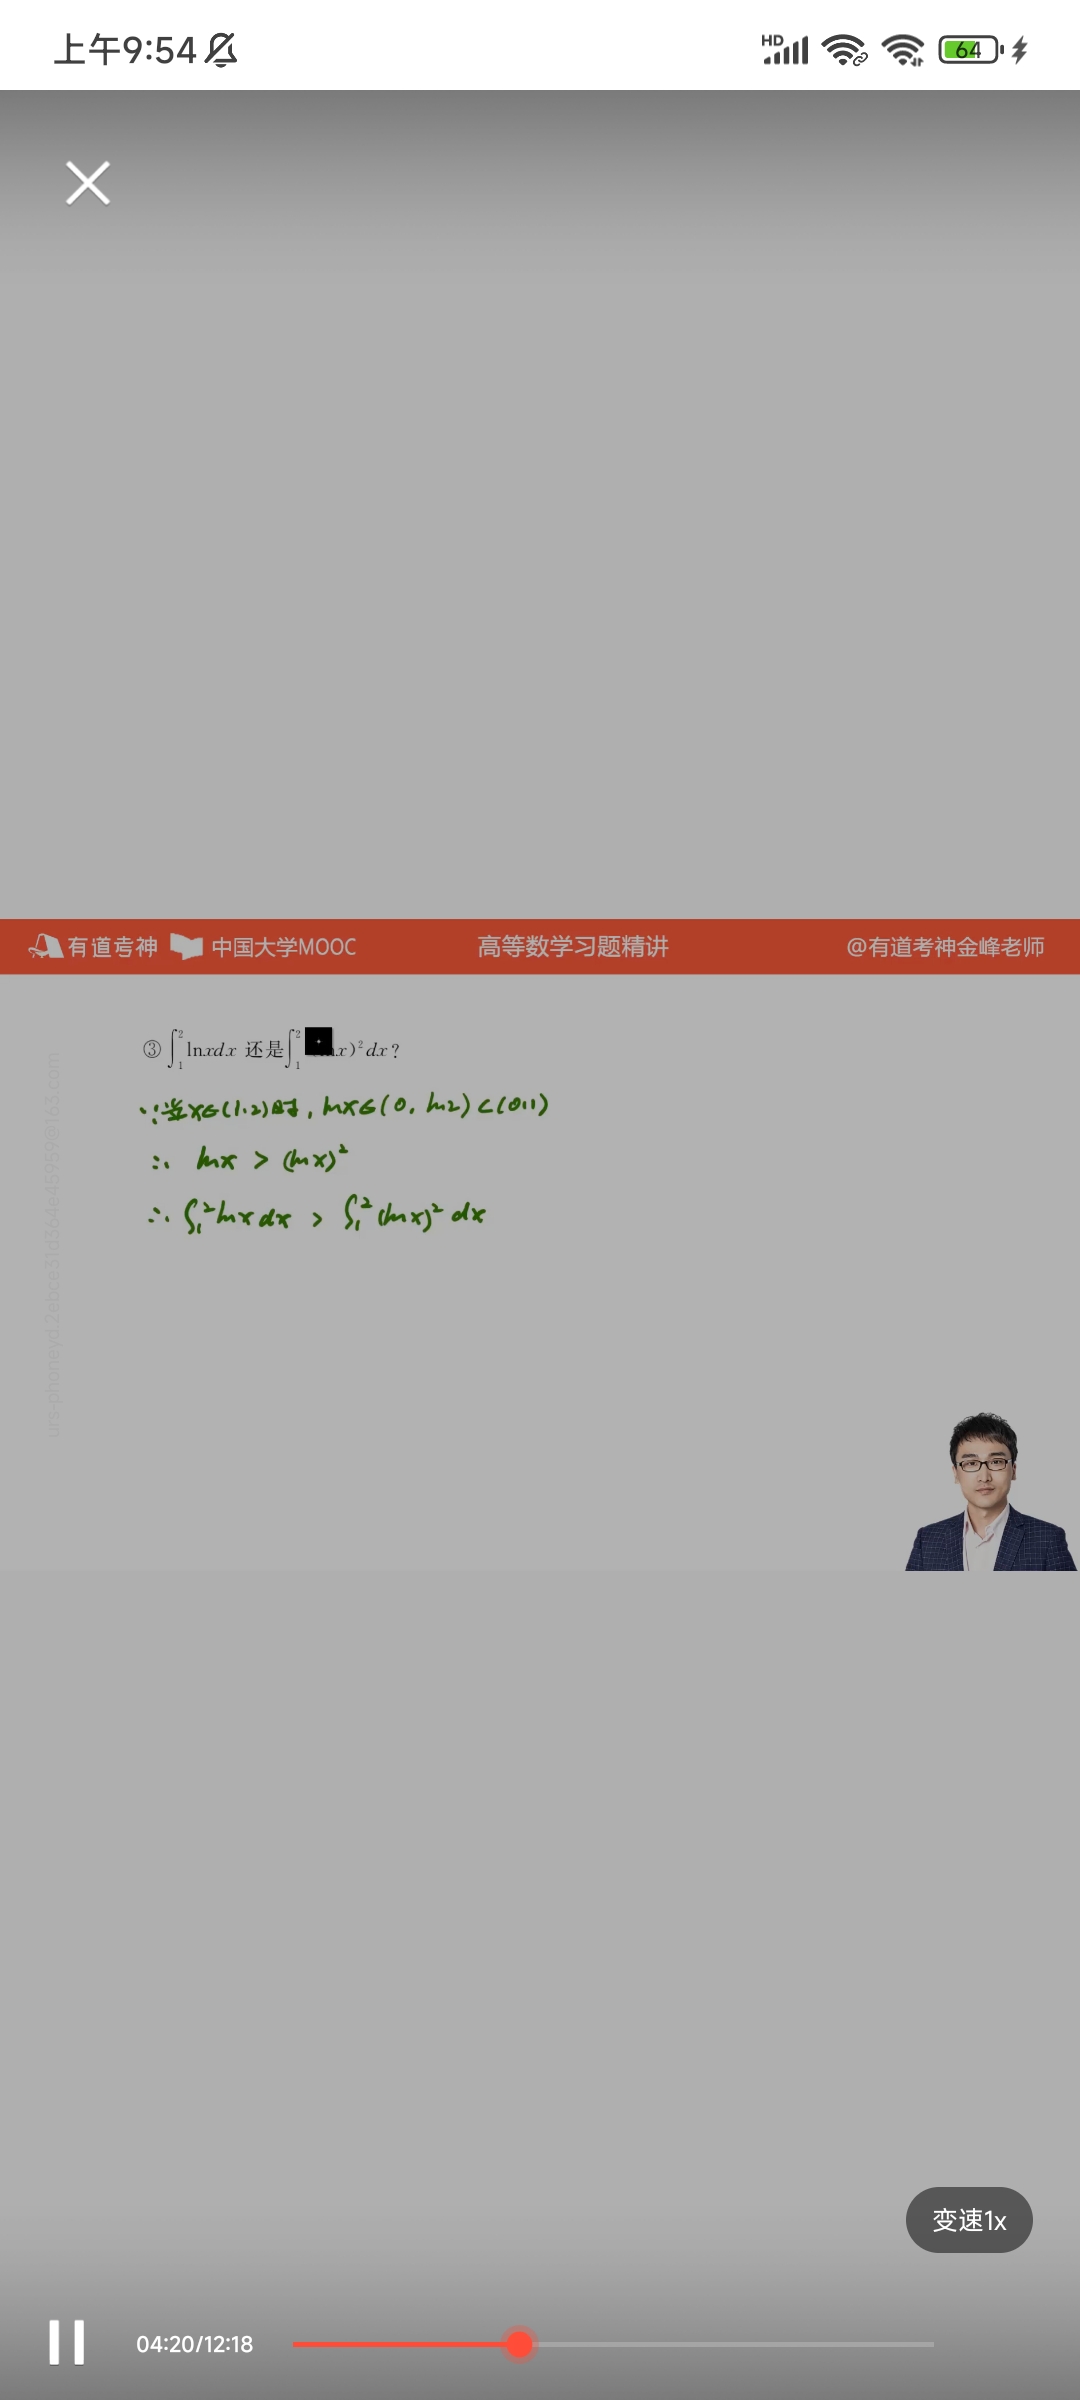 上午9:54 HD 64
有道考神 中国大学MOOC 高等数学习题精讲 @有道考神金峰老师
③∫₁²lnxdx 还是∫₁² x)²dx?
∵当x∈(1,2)时,lnx∈(0,ln2)⊂(0,1)
∴ lnx > (lnx)²
∴ ∫₁²lnxdx > ∫₁²(lnx)²dx
变速1x
04:20/12:18